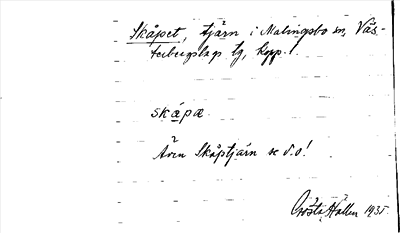 Skåpet, tjärn i Malingsbo sn, Väs-
terbergslags tg, Kopp. l.
skápæ
Även Skåptjärn se d.o!
Gösta Hallen 1935